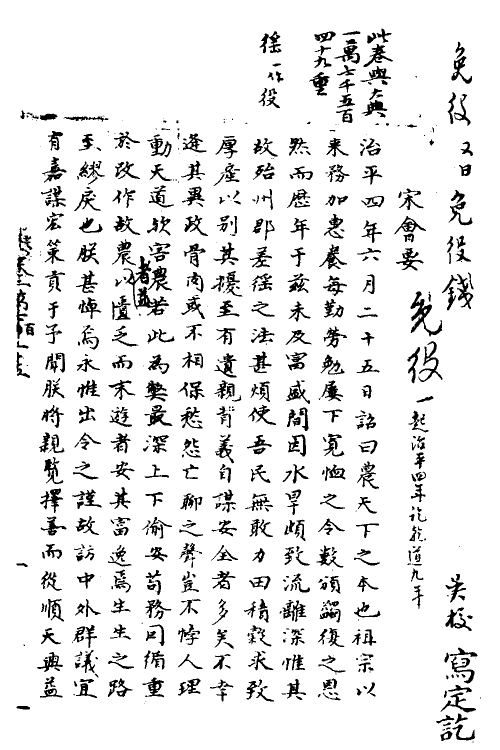 免役 又曰免役錢
吳校 寫定訖
免役 一起治平四年訖乾道九年
宋會要
此卷與大典
一萬七千五百
四十九重
徭一作役
治平四年六月二十五日詔曰農天下之本也祖宗以
來務加惠養每勤勞勉屢下寬恤之令數頒蠲復之恩
然而歷年于茲未及富盛間因水旱頗致流離深惟其
故殆州郡差徭之法甚煩使吾民無敢力田積穀求致
厚產以別其擾至有遺親背義自謀安全者多矣不幸
逢其異政骨肉或不相保愁怨亡聊之聲豈不悖人理
動天道欤害農若此為弊最深上下偷安苟務因循重
者益
於改作故農以匱乏而末遊者安其富逸焉生生之路
至繆戾也朕甚悼焉永惟出令之謹故訪中外群議宜
有嘉謀宏策貢于予聞朕將親覽擇善而從順天興益